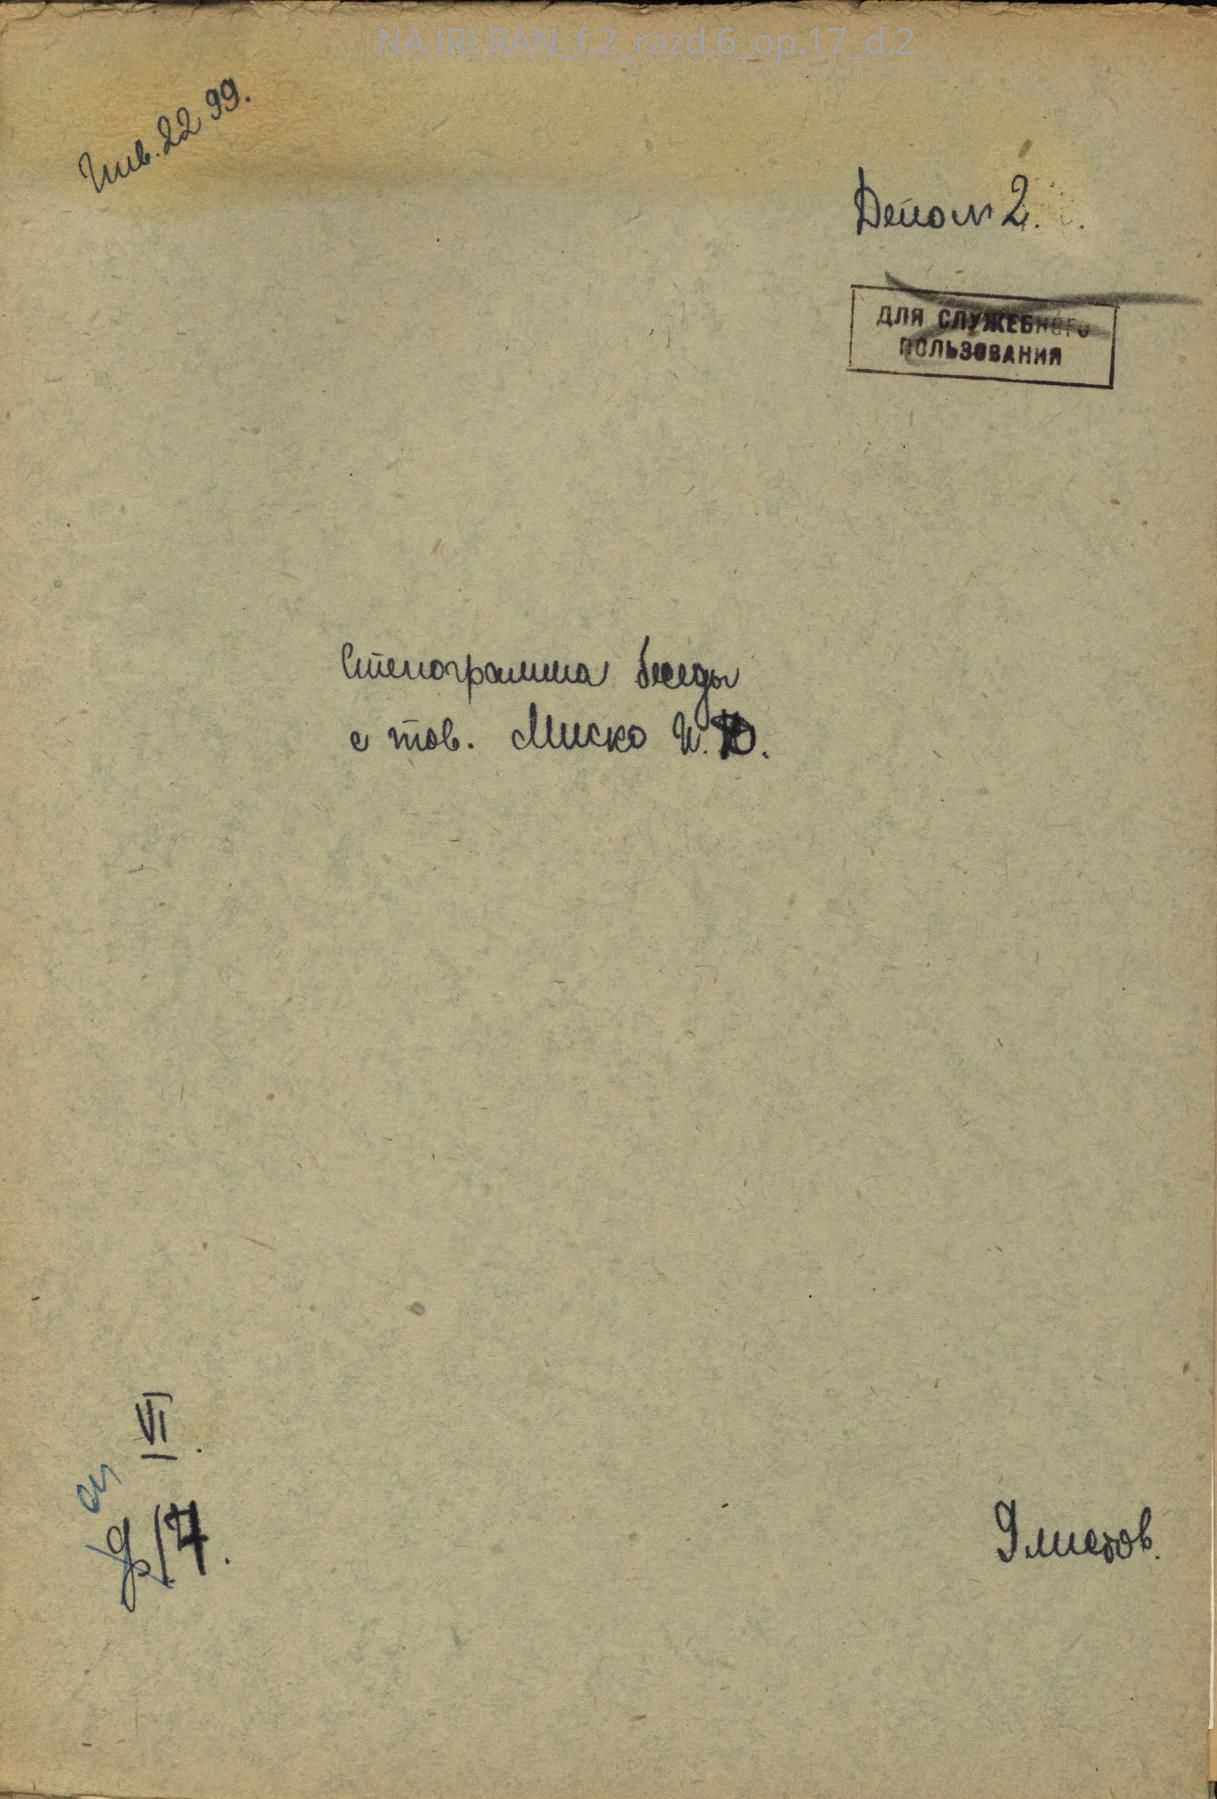 NA IRI RAN_f.2_razd.6_op.17_d.2
Инв. 22 99.
Дело № 2.
ДЛЯ СЛУЖЕБНОГО
ПОЛЬЗОВАНИЯ
Стенограмма беседы
с тов. Миско И. Ю.
VI.
оп
17.
9 листов.